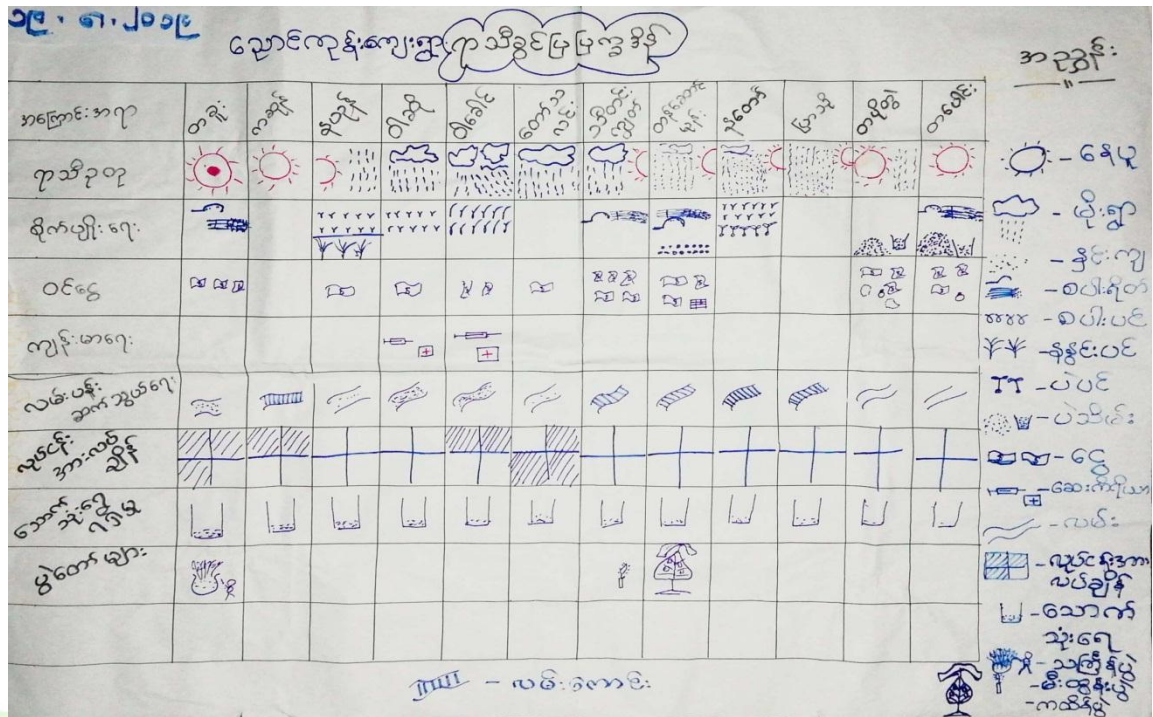 ၁၉.၈.၂၀၁၉
ညောင်ကုန်းကျေးရွာ ရာသီခွင်ပြ ပြက္ခဒိန်
အညွှန်း
အကြောင်းအရာ တန်ခူး ကဆုန် နယုန် ဝါဆို ဝါခေါင် တော်သလင်း သီတင်းကျွတ် တန်ဆောင်မုန်း နတ်တော် ပြာသို တပို့တွဲ တပေါင်း
ရာသီဥတု
စိုက်ပျိုးရေး
ဝင်ငွေ
ကျန်းမာရေး
လမ်းပန်း
ဆက်သွယ်ရေး
လုပ်ငန်း
အားလပ်
ချိန်
သောက်
သုံးရေ
ရရှိမှု
ပွဲတော်များ
- နေပူ
- မိုးရွာ
- နှင်းကျ
- စပါးရိတ်
- စပါးပင်
- နှမ်းပင်
- ပဲပင်
- ပဲသိမ်း
- ငွေ
- ဆေးကိရိယာ
- လမ်း
- လုပ်ငန်းအား
လပ်ချိန်
- သောက်
သုံးရေ
- သင်္ကြန်ပွဲ
- မီးထွန်းပွဲ
- ကထိန်ပွဲ
- လမ်းကောင်း